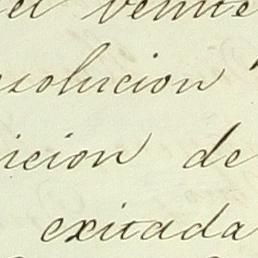 el veinte
esolucion
icion de
exitada